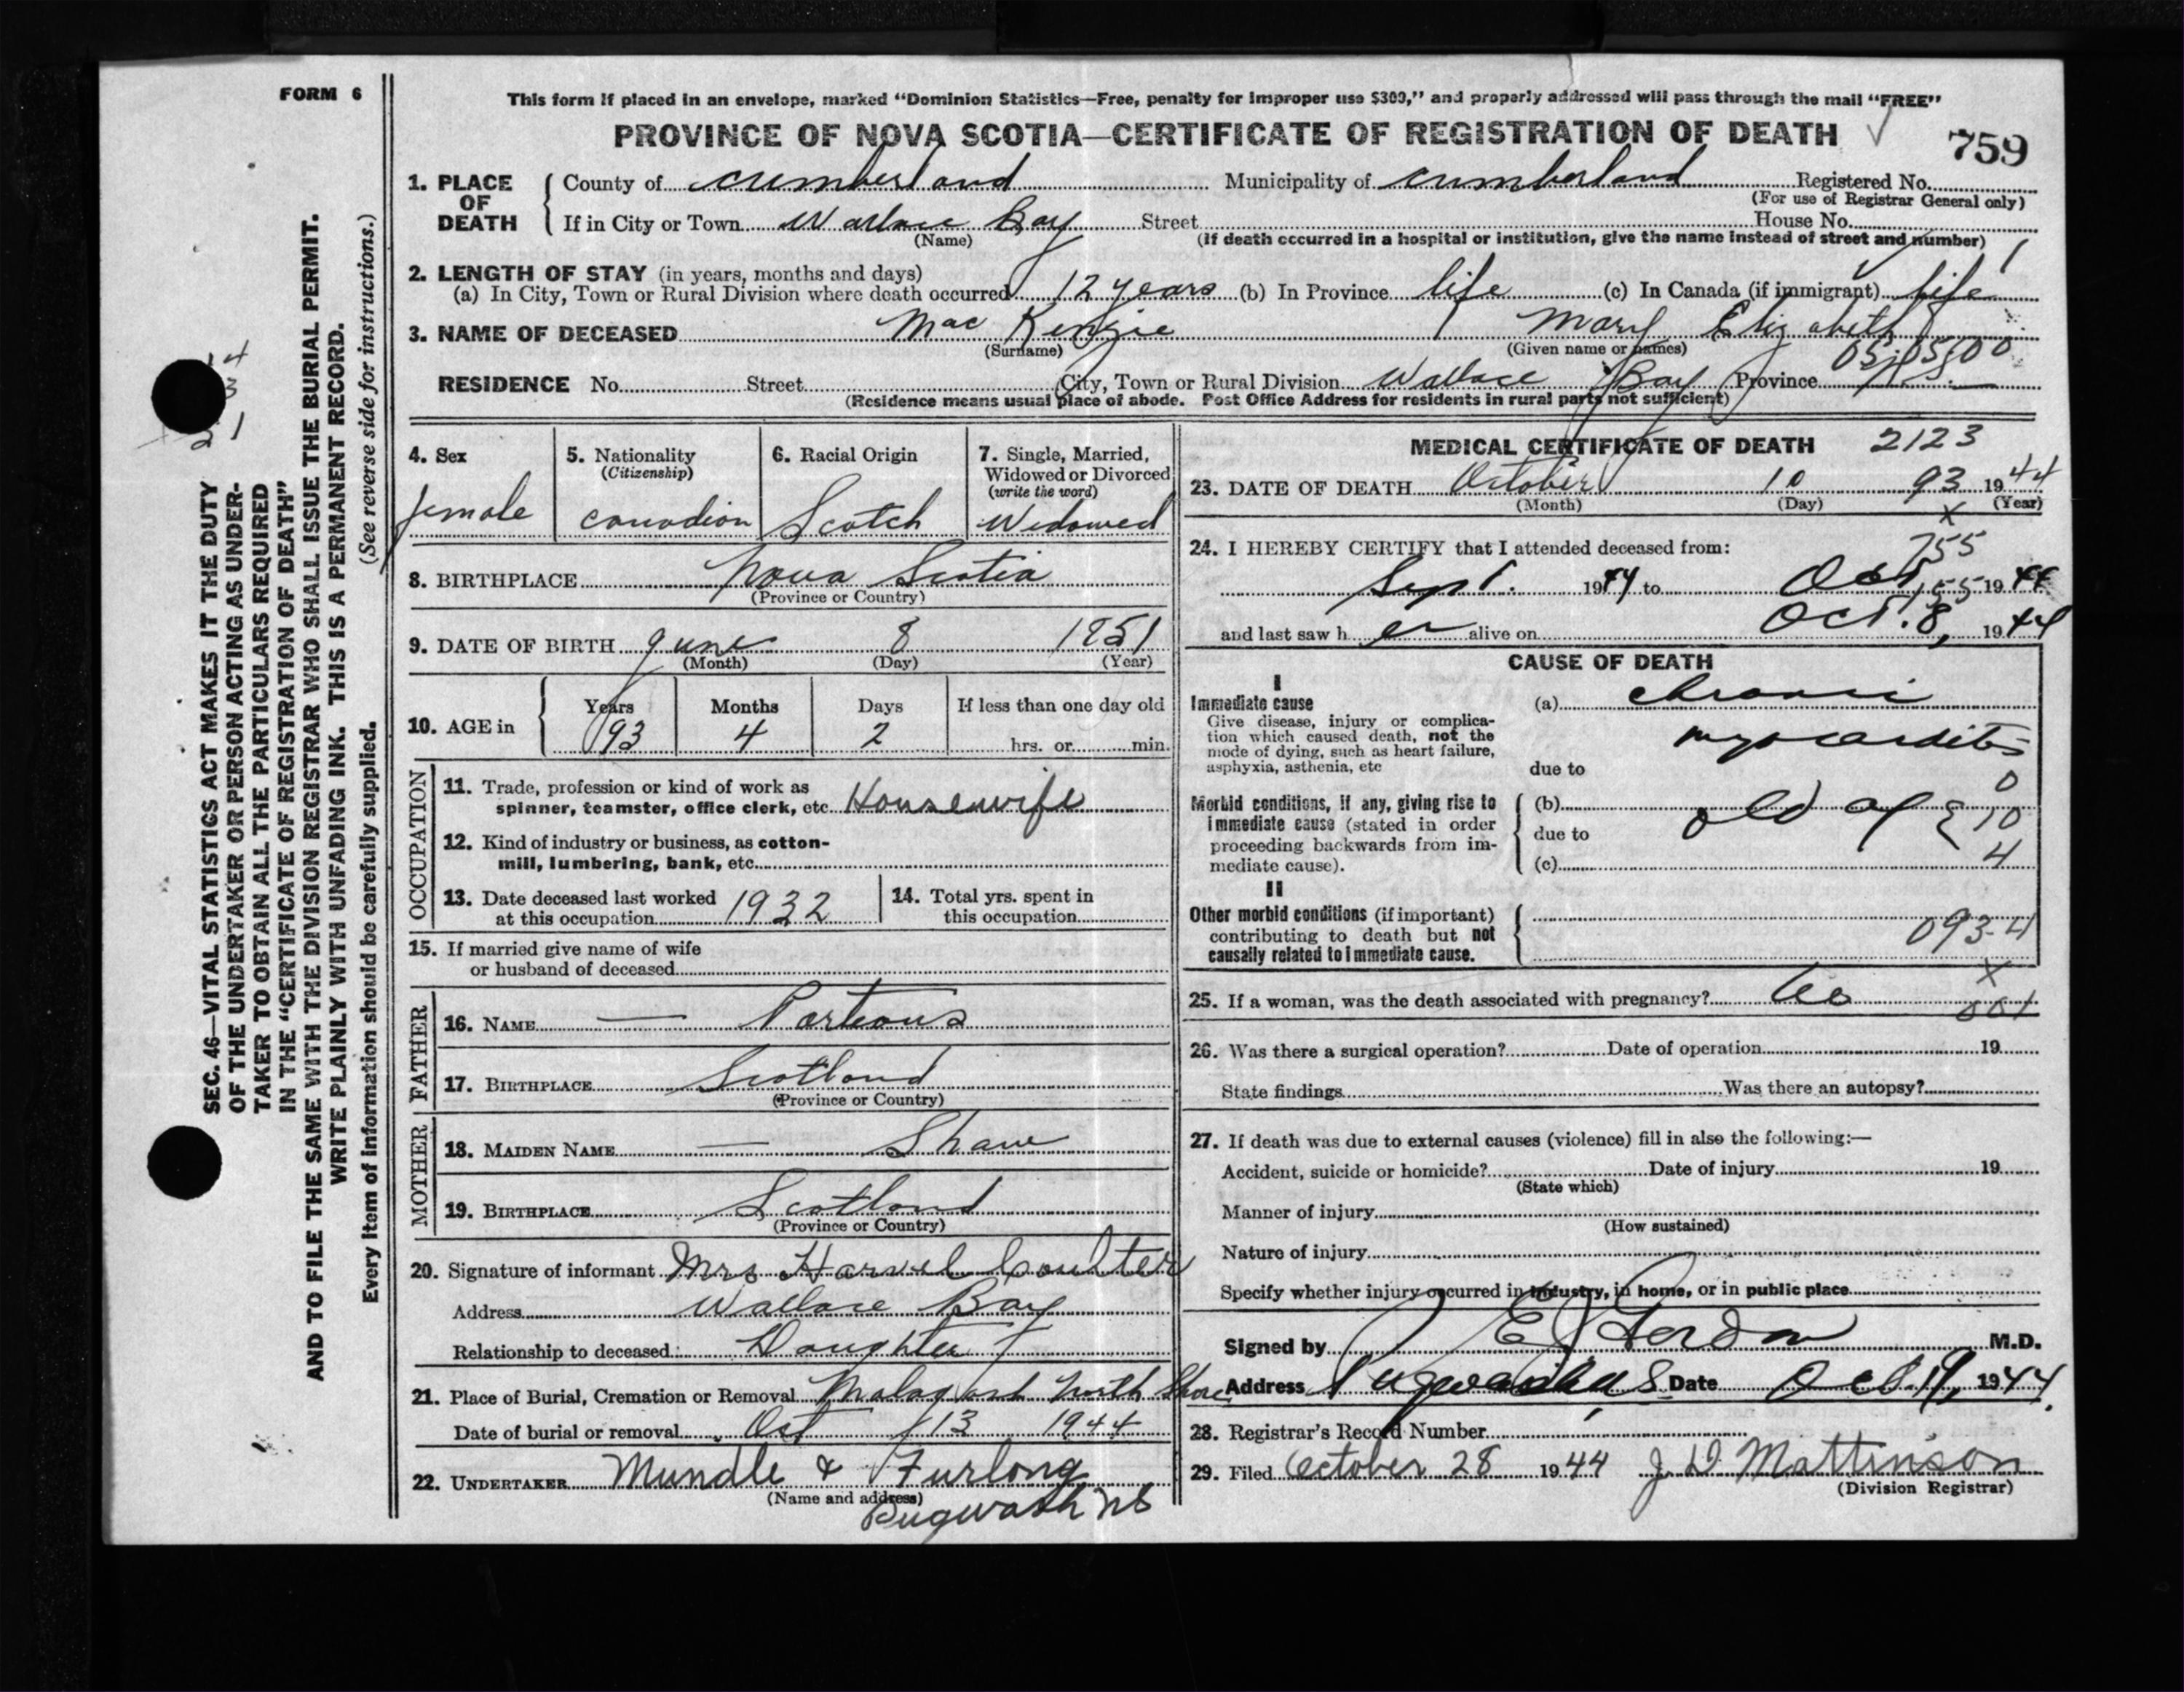 FORM 6
This form if placed in an envelope, marked “Dominion Statistics—Free, penalty for improper use $300,” and properly addressed will pass through the mail “FREE”
PROVINCE OF NOVA SCOTIA—CERTIFICATE OF REGISTRATION OF DEATH
759
1. PLACE OF DEATH
County of Cumberland Municipality of Cumberland Registered No.
(For use of Registrar General only)
If in City or Town Wallace Bay Street House No.
(Name) (If death occurred in a hospital or institution, give the name instead of street and number) 1
2. LENGTH OF STAY (in years, months and days)
(a) In City, Town or Rural Division where death occurred 12 years (b) In Province life (c) In Canada (if immigrant) life
3. NAME OF DECEASED Mac Kenzie Mary Elizabeth
(Surname) (Given name or names) 05:05:00
RESIDENCE No. Street City, Town or Rural Division Wallace Bay Province N.S.
(Residence means usual place of abode. Post Office Address for residents in rural parts not sufficient)
4. Sex
female
5. Nationality
(Citizenship)
Canadian
6. Racial Origin
Scotch
7. Single, Married,
Widowed or Divorced
(write the word)
Widowed
8. BIRTHPLACE Nova Scotia
(Province or Country)
9. DATE OF BIRTH June 8 1851
(Month) (Day) (Year)
10. AGE in
Years Months Days If less than one day old
93 4 2 hrs. or min.
OCCUPATION
11. Trade, profession or kind of work as
spinner, teamster, office clerk, etc. Housewife
12. Kind of industry or business, as cotton-
mill, lumbering, bank, etc.
13. Date deceased last worked
at this occupation 1932
14. Total yrs. spent in
this occupation
15. If married give name of wife
or husband of deceased
FATHER
16. NAME — Porteous
17. BIRTHPLACE Scotland
(Province or Country)
MOTHER
18. MAIDEN NAME — Shaw
19. BIRTHPLACE Scotland
(Province or Country)
20. Signature of informant Mrs Harvel Coulter
Address Wallace Bay
Relationship to deceased Daughter
21. Place of Burial, Cremation or Removal Malagash North Shore
Date of burial or removal Oct 13 1944
22. UNDERTAKER Mundle & Furlong
(Name and address)
Pugwash NS
MEDICAL CERTIFICATE OF DEATH 2123
23. DATE OF DEATH October 10 93 1944
(Month) (Day) (Year)
X
24. I HEREBY CERTIFY that I attended deceased from:
755
Sept. 1944 to Oct 155 1944
and last saw her alive on Oct. 8, 1944
CAUSE OF DEATH
I
Immediate cause
Give disease, injury or complica-
tion which caused death, not the
mode of dying, such as heart failure,
asphyxia, asthenia, etc
(a) chronic
myocarditis
due to
Morbid conditions, if any, giving rise to
immediate cause (stated in order
proceeding backwards from im-
mediate cause).
0
(b) old age 10
due to
(c) 4
II
Other morbid conditions (if important)
contributing to death but not
causally related to immediate cause.
093-4
X
25. If a woman, was the death associated with pregnancy? No 001
26. Was there a surgical operation? Date of operation 19
State findings Was there an autopsy?
27. If death was due to external causes (violence) fill in also the following:—
Accident, suicide or homicide? Date of injury 19
(State which)
Manner of injury
(How sustained)
Nature of injury
Specify whether injury occurred in industry, in home, or in public place
Signed by E Gordon M.D.
Address Pugwash N S Date Oct 19, 1944.
28. Registrar's Record Number
29. Filed October 28 1944 J D Mattinson
(Division Registrar)
SEC. 46—VITAL STATISTICS ACT MAKES IT THE DUTY
OF THE UNDERTAKER OR PERSON ACTING AS UNDER-
TAKER TO OBTAIN ALL THE PARTICULARS REQUIRED
IN THE “CERTIFICATE OF REGISTRATION OF DEATH”
AND TO FILE THE SAME WITH THE DIVISION REGISTRAR WHO SHALL ISSUE THE BURIAL PERMIT.
WRITE PLAINLY WITH UNFADING INK. THIS IS A PERMANENT RECORD.
Every item of information should be carefully supplied. (See reverse side for instructions.)
14
3
21